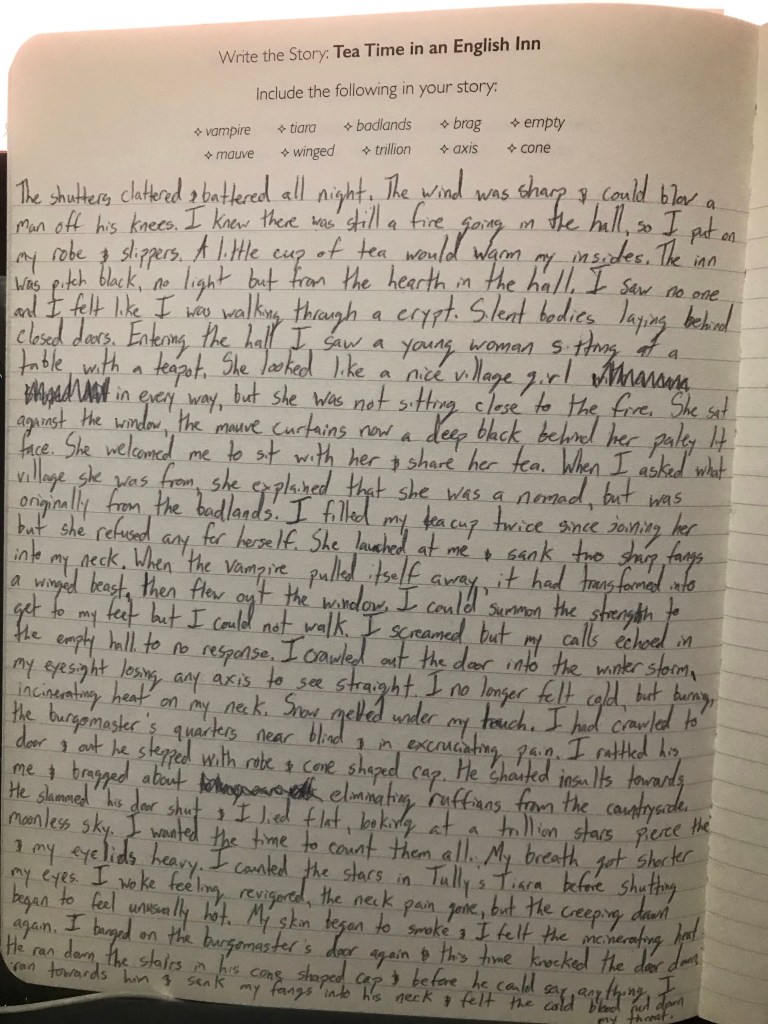 Write the Story: Tea Time in an English Inn
Include the following in your story:
✧ vampire ✧ tiara ✧ badlands ✧ brag ✧ empty
✧ mauve ✧ winged ✧ trillion ✧ axis ✧ cone
The shutters clattered & battered all night. The wind was sharp & could blow a
man off his knees. I knew there was still a fire going in the hall, so I put on
my robe & slippers. A little cup of tea would warm my insides. The inn
was pitch black, no light but from the hearth in the hall. I saw no one
and I felt like I was walking through a crypt. Silent bodies laying behind
closed doors. Entering the hall I saw a young woman sitting at a
table, with a teapot. She looked like a nice village girl
in every way, but she was not sitting close to the fire. She sat
against the window, the mauve curtains now a deep black behind her paley lit
face. She welcomed me to sit with her & share her tea. When I asked what
village she was from, she explained that she was a nomad, but was
originally from the badlands. I filled my teacup twice since joining her
but she refused any for herself. She launched at me & sank two sharp fangs
into my neck. When the vampire pulled itself away, it had transformed into
a winged beast, then flew out the window. I could summon the strength to
get to my feet but I could not walk. I screamed but my calls echoed in
the empty hall to no response. I crawled out the door into the winter storm,
my eyesight losing any axis to see straight. I no longer felt cold, but burning,
incinerating heat on my neck. Snow melted under my touch. I had crawled to
the burgomaster's quarters near blind & in excruciating pain. I rattled his
door & out he stepped with robe & cone shaped cap. He shouted insults towards
me & bragged about eliminating ruffians from the countryside.
He slammed his door shut & I lied flat, looking at a trillion stars pierce the
moonless sky. I wanted the time to count them all. My breath got shorter
& my eyelids heavy. I counted the stars in Tully's Tiara before shutting
my eyes. I woke feeling revigored, the neck pain gone, but the creeping dawn
began to feel unusually hot. My skin began to smoke & I felt the incinerating heat
again. I banged on the burgomaster's door again & this time knocked the door down.
He ran down the stairs in his cone shaped cap & before he could say anything, I
ran towards him & sank my fangs into his neck & felt the cold blood run down
my throat.